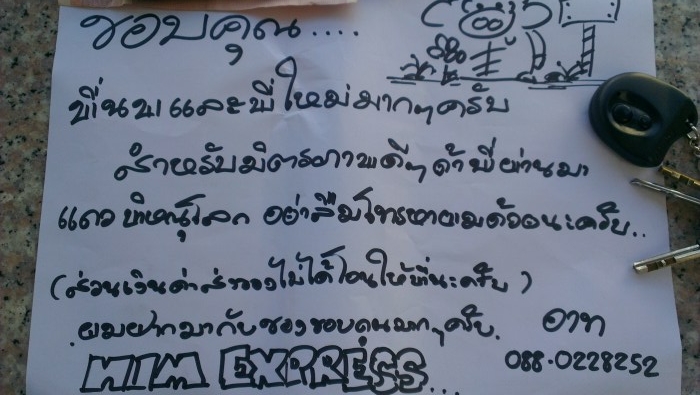 ขอบคุณ....
พี่นพและพี่ใหม่มากๆครับ
สำหรับมิตรภาพดีๆ ถ้าพี่ผ่านมา
แถว พิษณุโลก อย่าลืมโทรหาผมด้วยนะครับ..
(ส่วนเงินค่าส่งของไม่ได้โอนให้พี่นะครับ)
ผมฝากมากับซองขอบคุณมากๆครับ.
อาท
088-0228252
NIM EXPRESS...